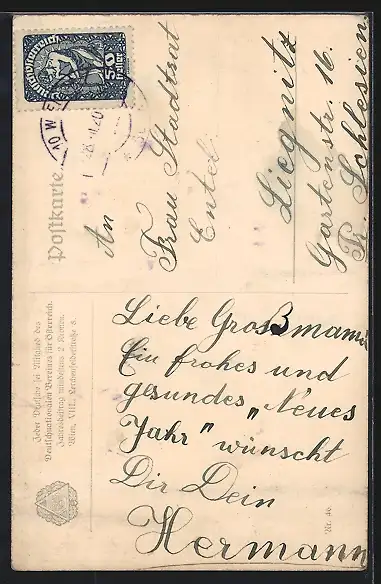 Deutschösterreich
50
Heller
10 WIEN
28.
20
Postkarte
An
Frau Stadtrat
Entel
Liegnitz
Gartenstr. 16.
Pr. Schlesien
Jeder Deutsche sei Mitglied des
Deutschnationalen Vereines für Österreich.
Jahresbeitrag mindestens 2 Kronen.
Wien, VIII., Lerchenfelderstraße 8.
Liebe Grossmama
Ein frohes und
gesundes „Neues
Jahr" wünscht
Dir Dein
Hermann
Nr. 46